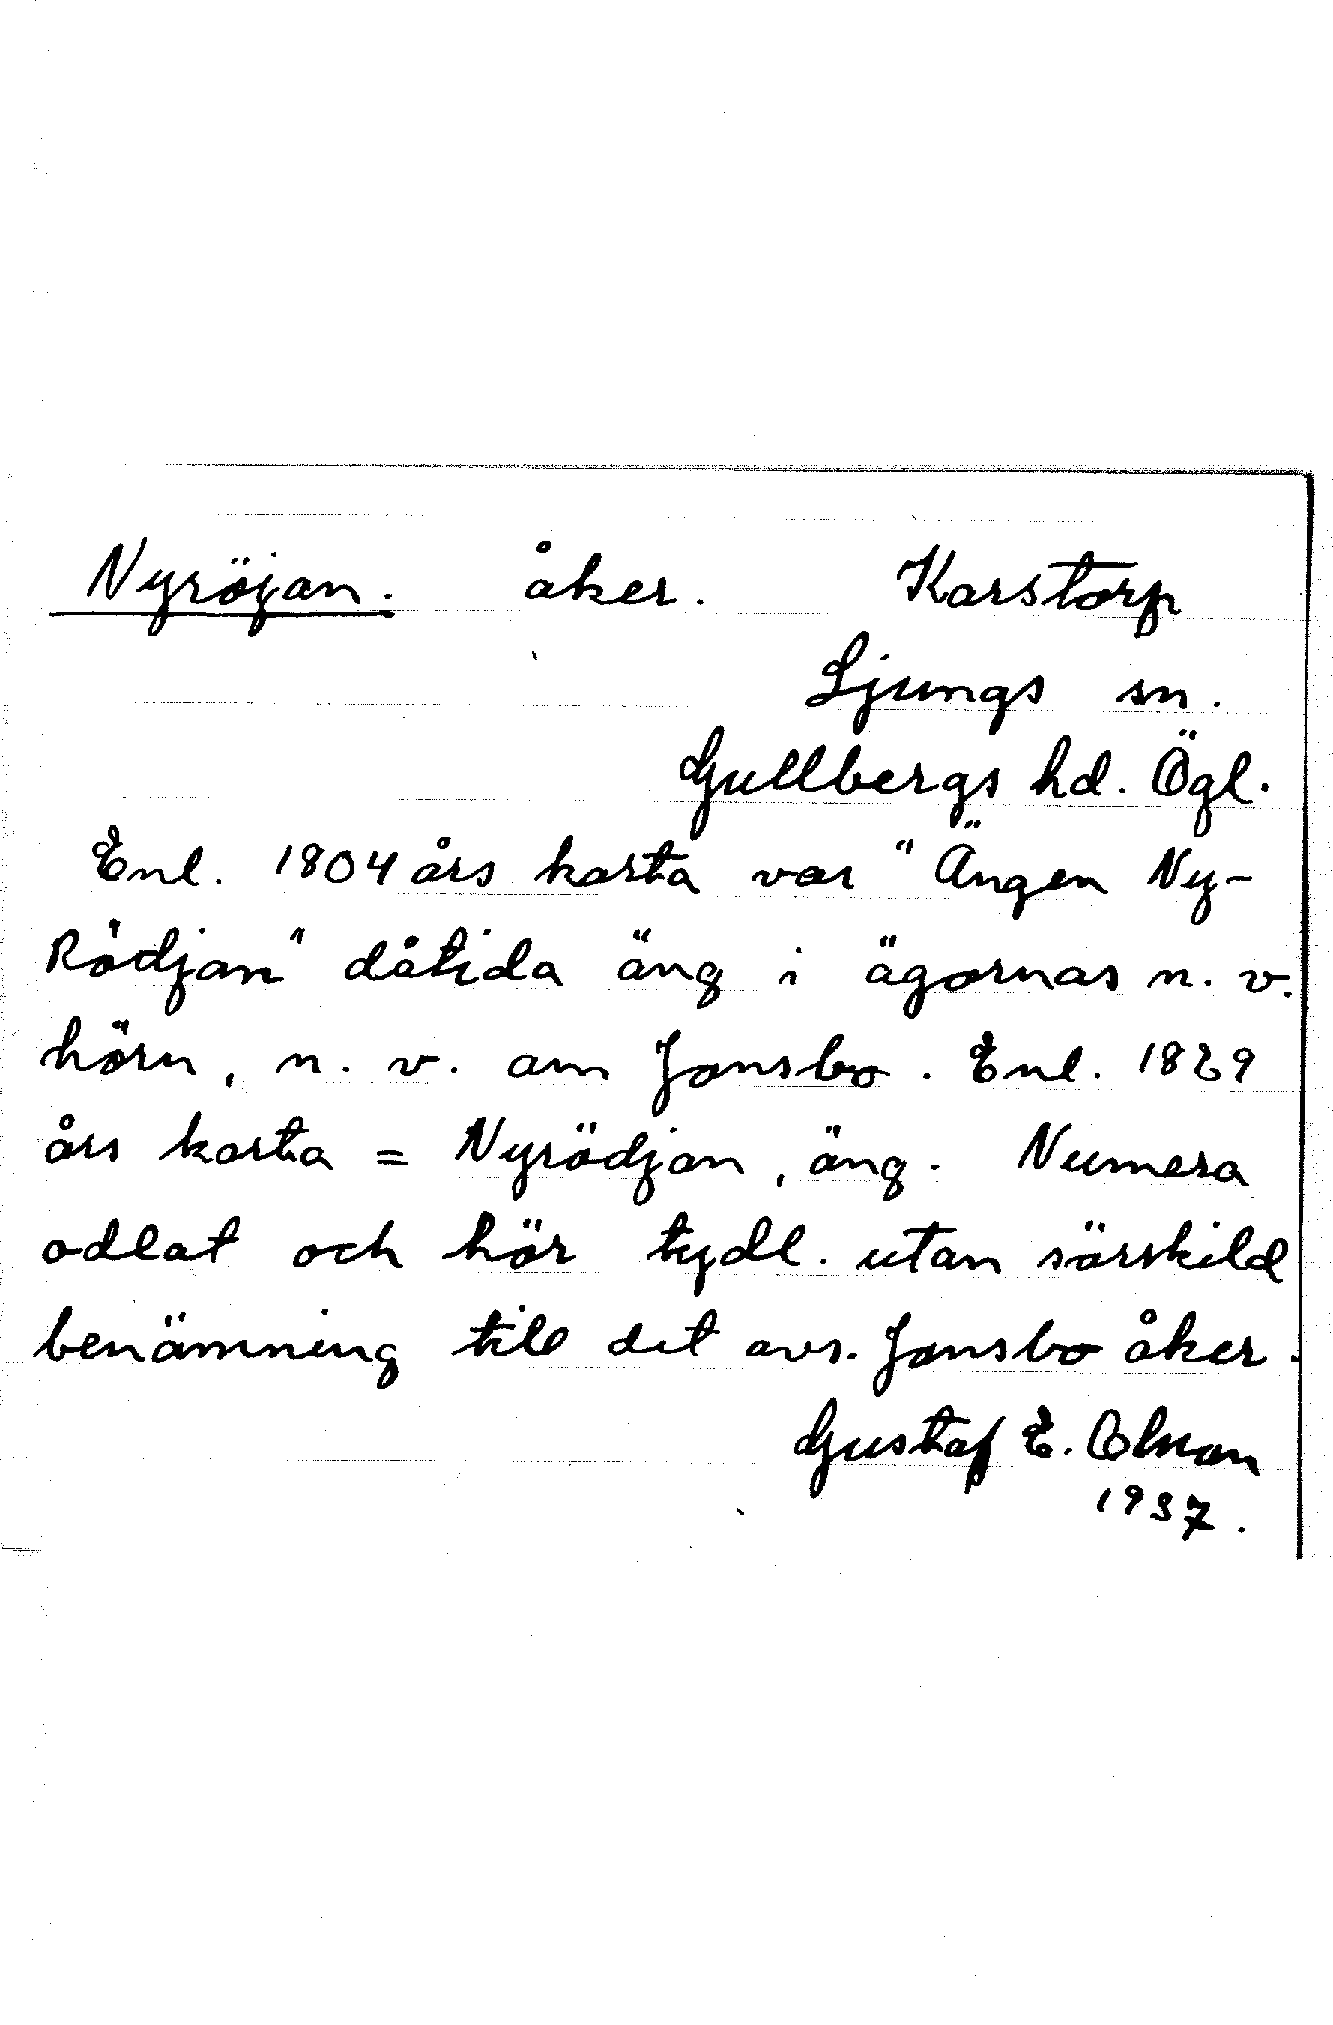 Nyröjan. åker. Karstorp
Ljungs sn.
Gullbergs hd. Ögl.
Enl. 1804 års karta var "Ängen Ny-
Rödjan" dåtida äng i ägornas n. v.
hörn, n. v. om Jonsbo. Enl. 1829
års karta = Nyrödjan, äng. Numera
odlat och hör tydl. utan särskild
benämning till det avs. Jonsbo åker.
Gustaf E. Olsson
1937.